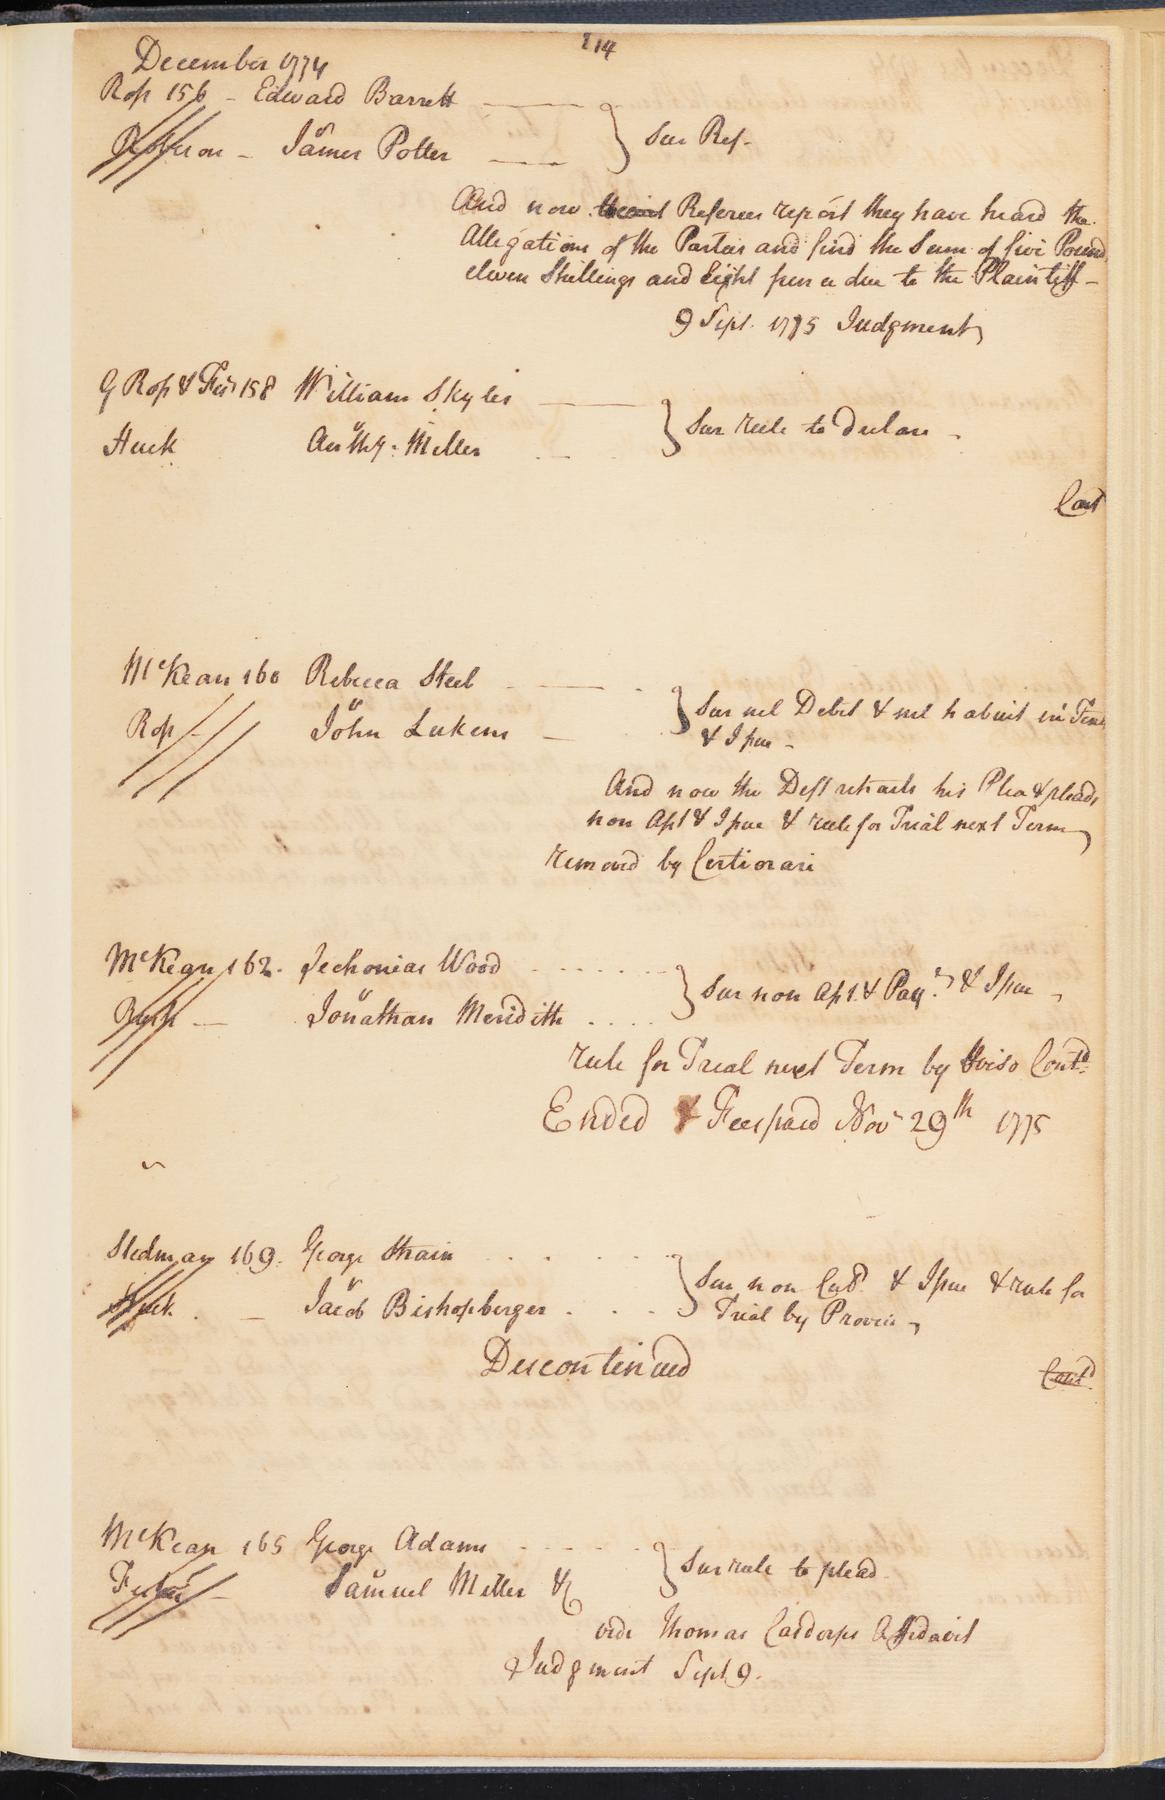 214
December 1774
Ross 156 - Edward Barrett
Sur Ref.
James Potter
And now the Referees report they have heard the
Allegations of the Parties and find the Sum of five Pound
eleven Shillings and Eight pence due to the Plaintiff -
9 Sept. 1775 Judgment
G Ross & 158 William Skyles
Sur rule to declare -
Huck Anthy: Miller
Cont
McKean 160 Rebecca Steel
Sur nil Debet & nil habuit in Tene
Ross - John Lukens
& Issue -
And now the Deft retracts his Plea & pleads
non Asst & Issue & rule for Trial next Term
removd by Certiorari
McKean 162. Jechonias Wood
Sur non Asst. & Paymt & Issue
Rush - Jonathan Meridith
rule for Trial next Term by Proviso Contd.
Ended & Fees paid Novr 29th 1775
Stedman 169. George Strain
Sur non Culp & Issue & rule for
Huck. - Jacob Bishopberger
Trial by Proviso
Discontinued
Contd
McKean 165 George Adams
Sur rule to plead
Samuel Miller &c
vide Thomas Affidavit
Judgment Sept 9.